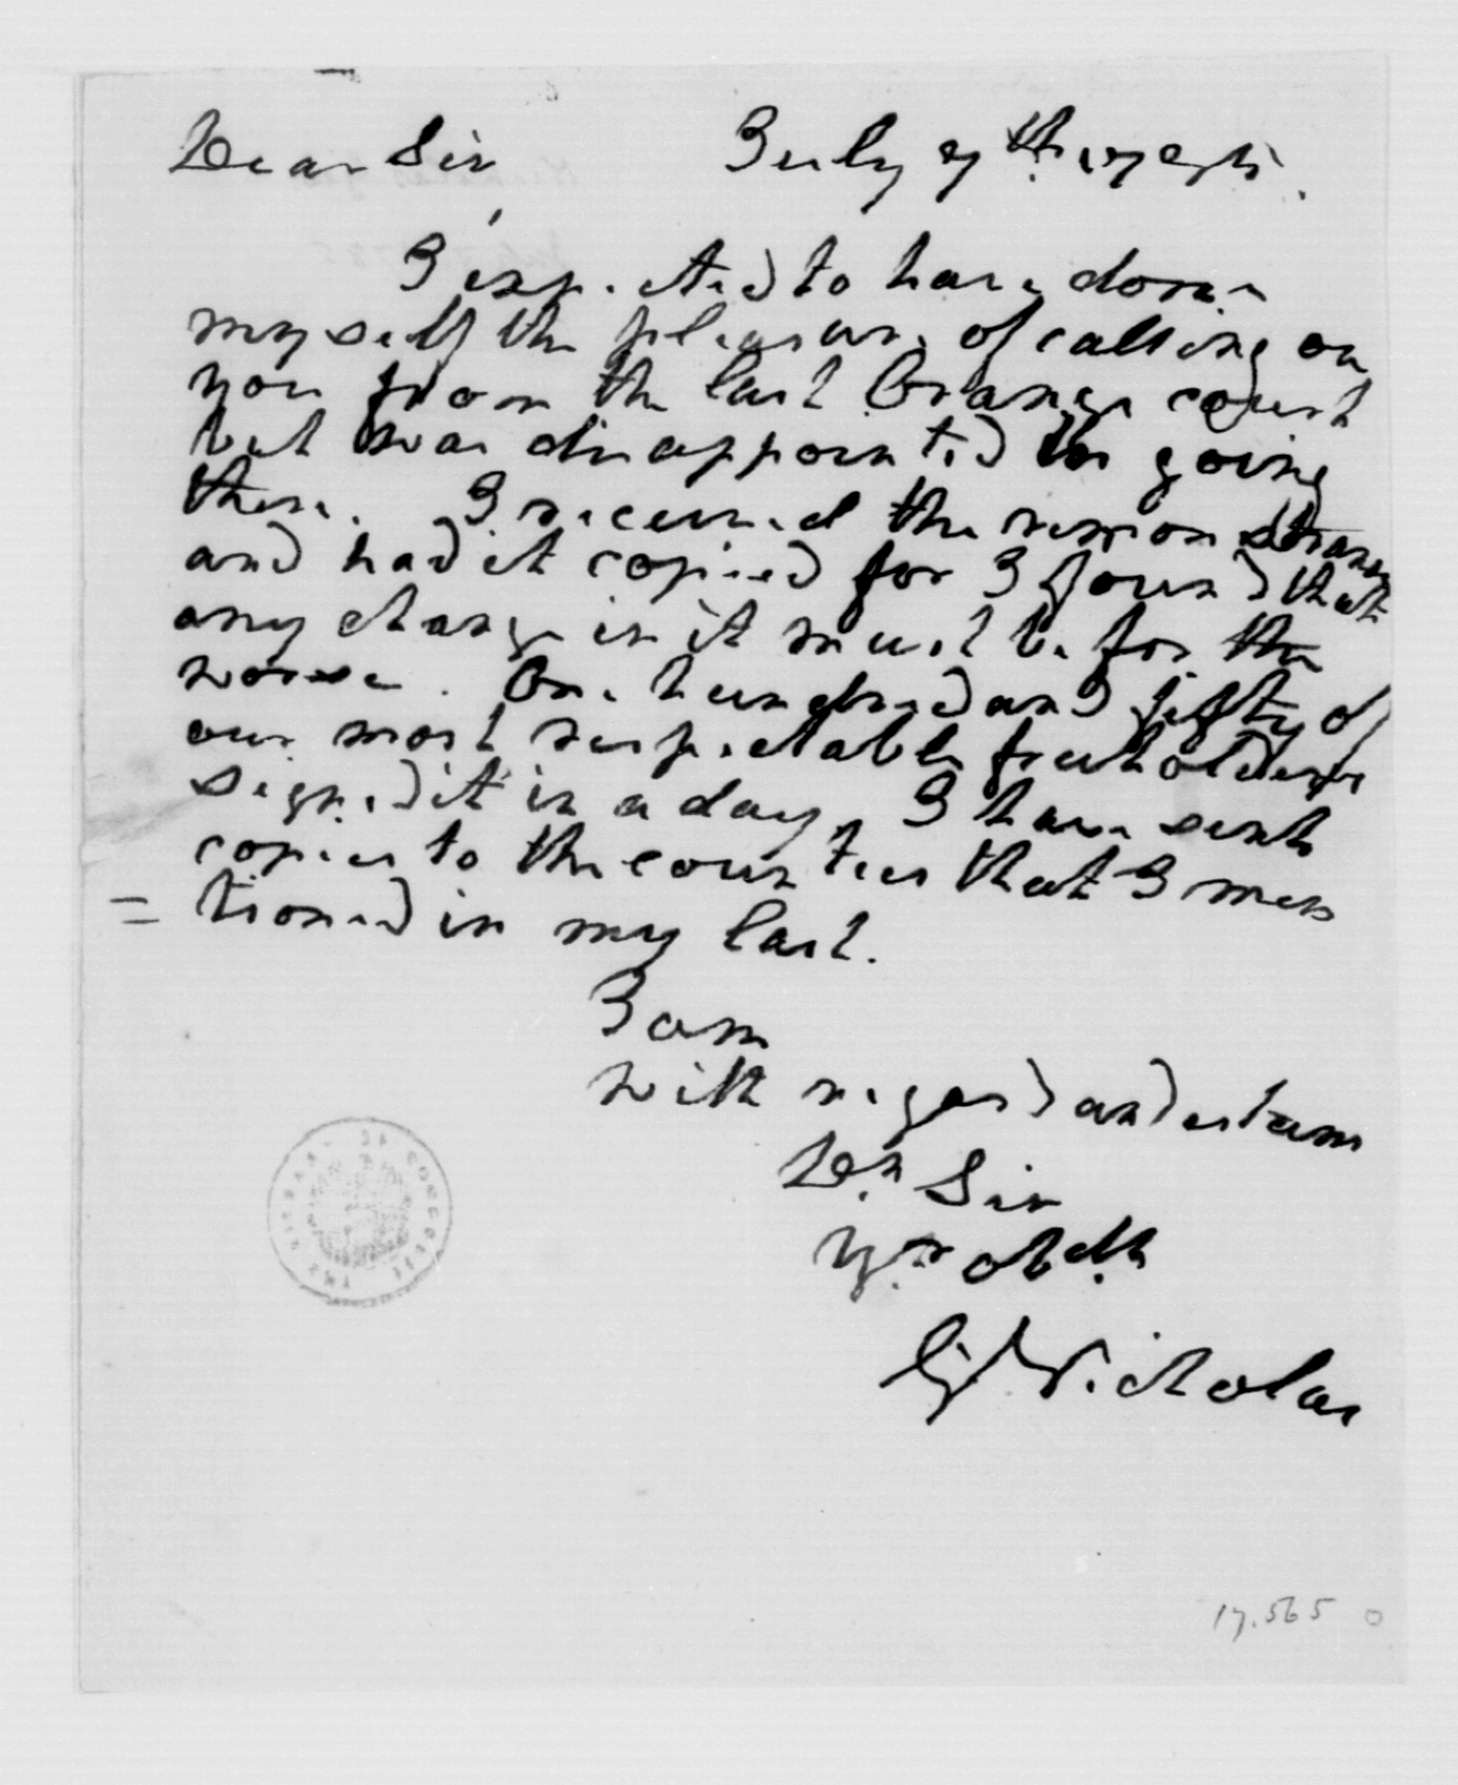 Dear Sir July 7th. 1785.
I expected to have done
myself the pleasure of calling on
you from the last Orange court
but was disappointed in going
there. I received the remonstrance
and had it copied for I found that
any change in it must be for the
worse. One hundred and fifty of
our most respectable freeholders
signed it in a day. I have sent
copies to the counties that I men
= tioned in my last.
I am
with regard and esteem
Dr. Sir
Yr.
G Nicholas
17.565